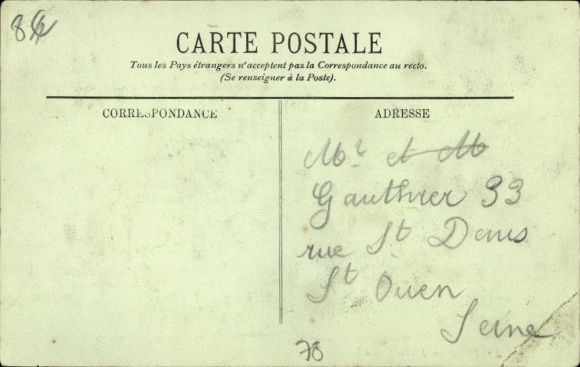 CARTE POSTALE
Tous les Pays étrangers n'acceptent pas la Correspondance au recto.
(Se renseigner à la Poste).
CORRESPONDANCE
ADRESSE
Mr et M
Gauthier 33
rue St Denis
St Ouen
Seine
78